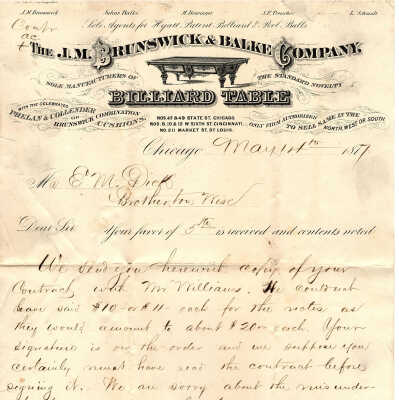 J.M. Brunswick Julius Balke M. Bensinger A.F. Troescher L. Schmidt
Sole Agents for Hyatt Patent Billiard & Pool Balls
THE J.M. BRUNSWICK & BALKE COMPANY.
SOLE MANUFACTURERS OF THE STANDARD NOVELTY
BILLIARD TABLE
WITH THE CELEBRATED
PHELAN & COLLENDER
OR
BRUNSWICK COMBINATION
CUSHIONS.
NOS. 47 & 49 STATE ST. CHICAGO
NOS. 8, 10 & 12 W. SIXTH ST. CINCINNATI
NO. 211 MARKET ST. ST. LOUIS.
ONLY FIRM AUTHORIZED
TO SELL SAME IN THE
NORTH, WEST OR SOUTH
Chicago May 14th 187
Mr E. M.
Brotherton Wisc
Dear Sir Your favor of 5th is received and contents noted
We send you herewith copy of your
Contract with Mr Williams. He
have said $10 or $11 each for the notes as
they would amount to about $20 each. Your
signature is on the order and we suppose you
certainly must have read the contract before
signing it. We are sorry about the misunder-